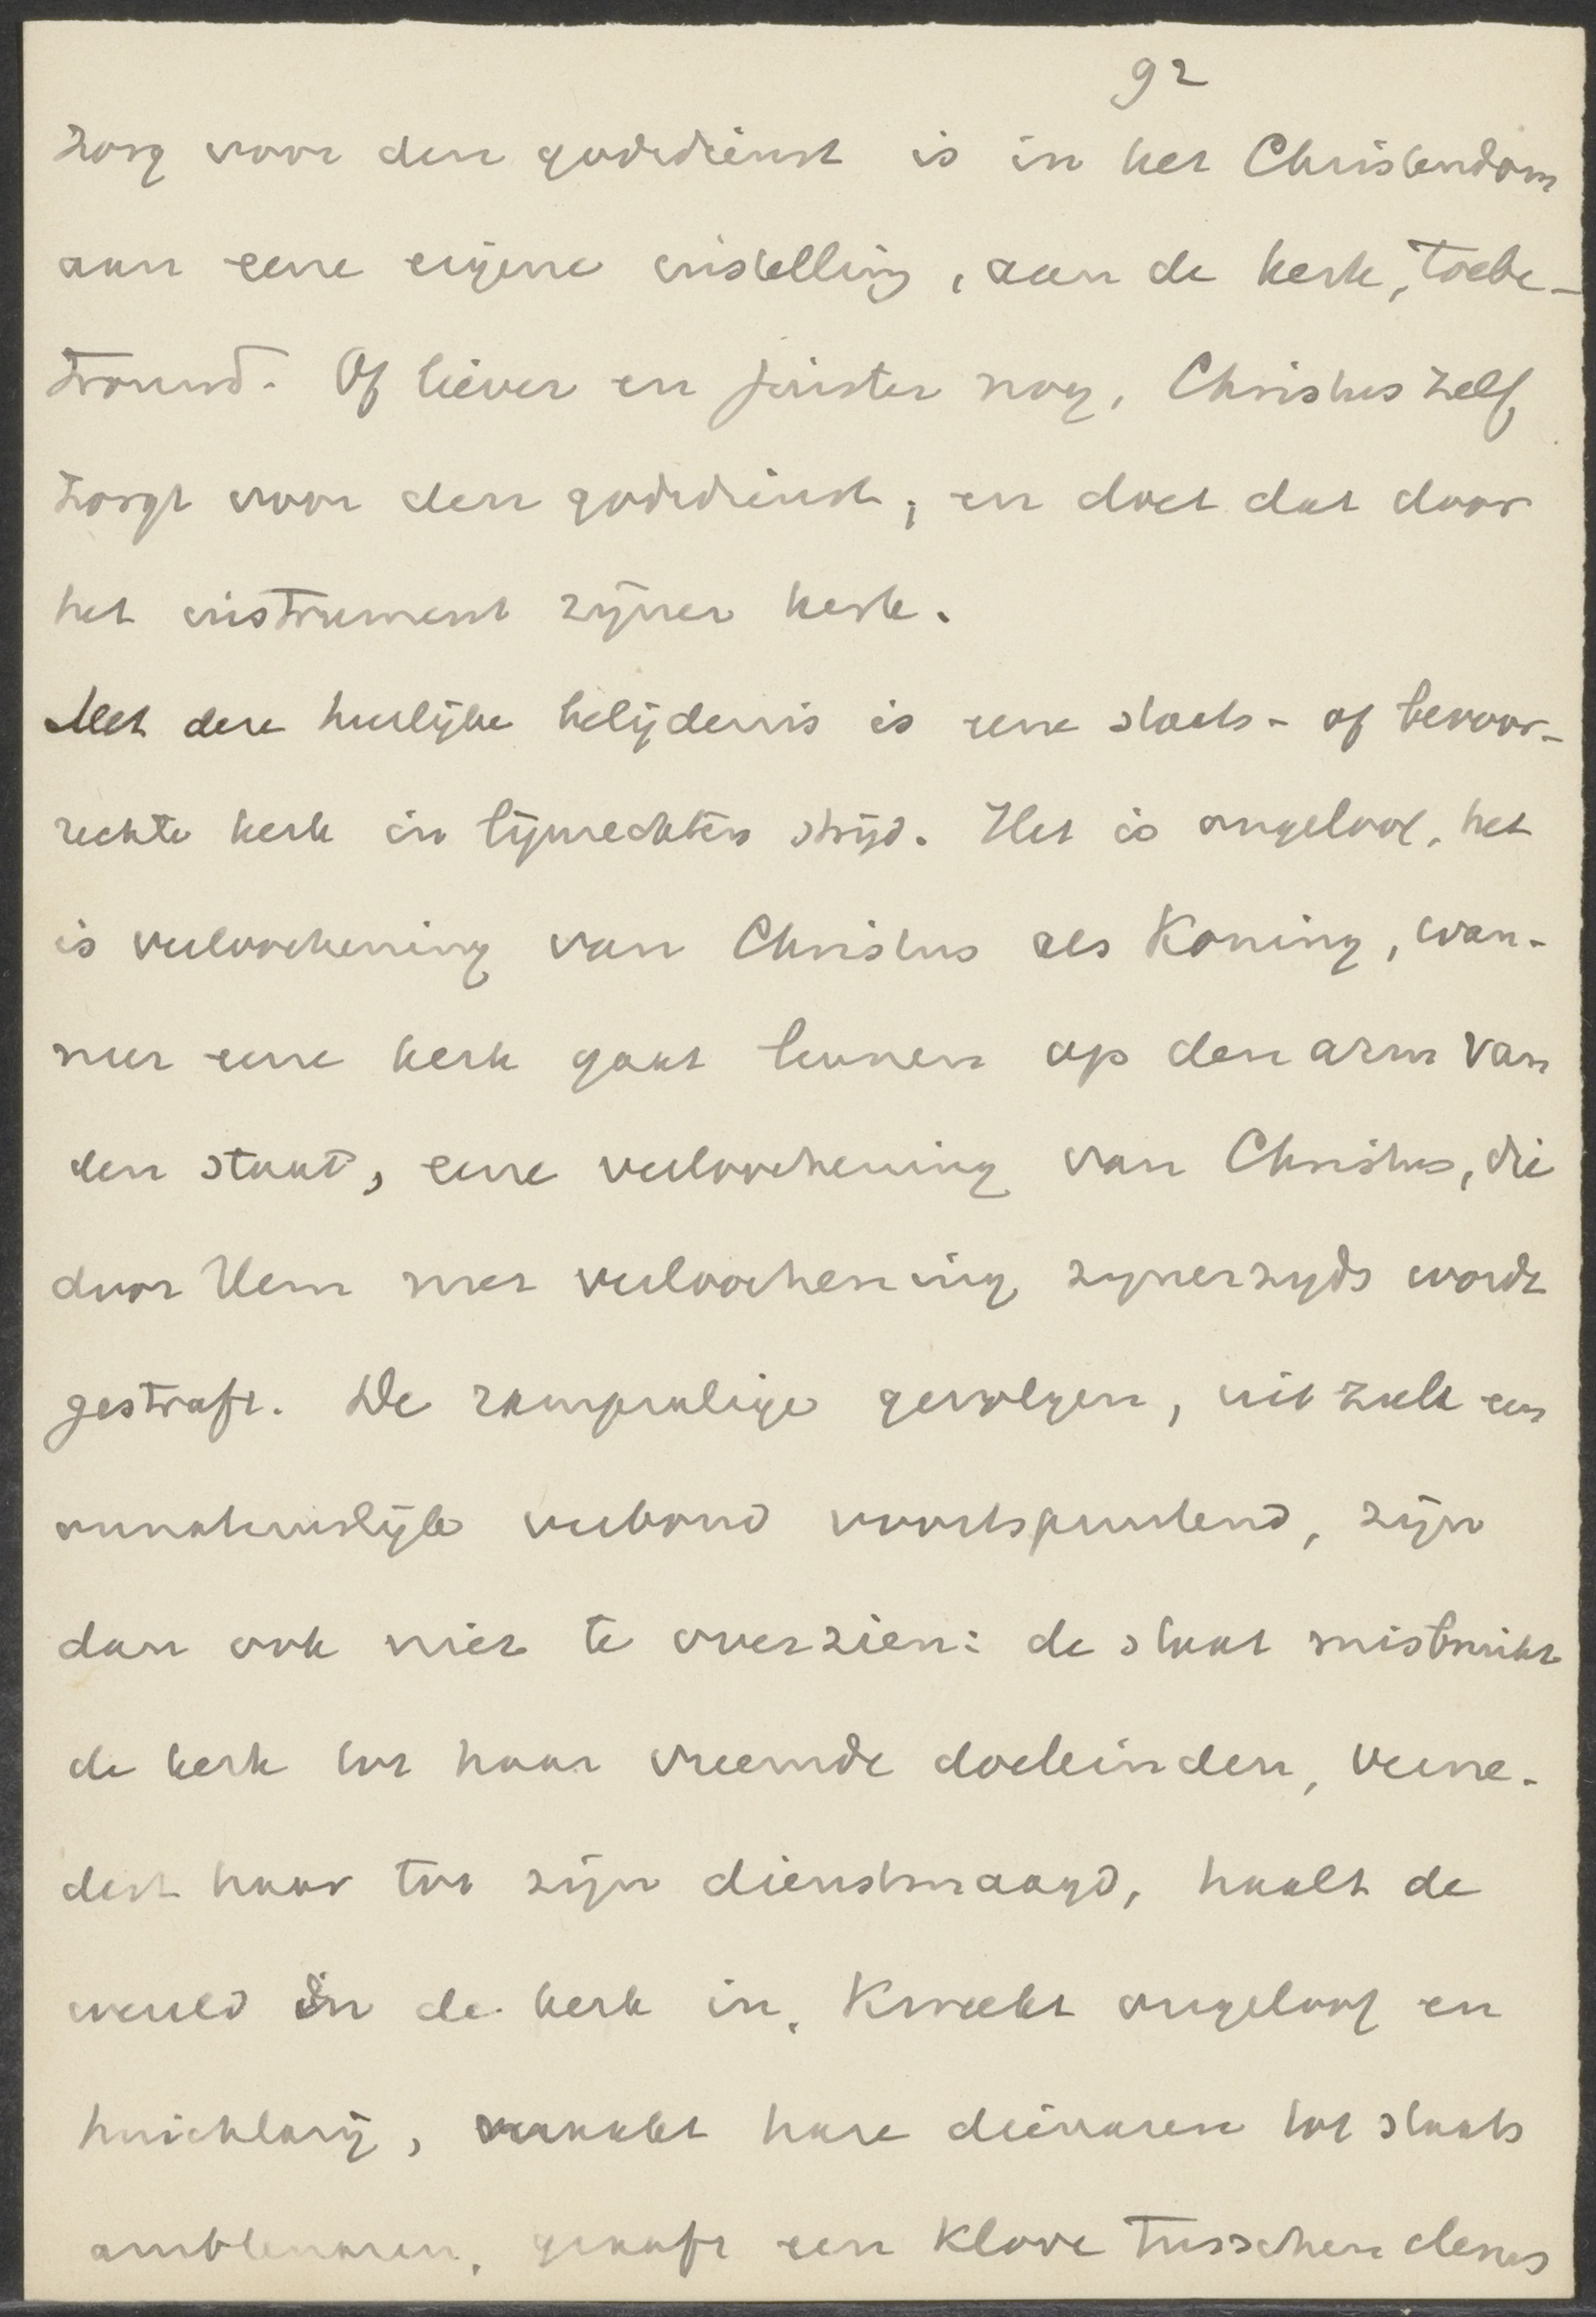 92
zorg voor den godsdienst is in het Christendom
aan eene eigene instelling, aan de kerk, toebe-
trouwd. Of liever en juister nog, Christus zelf
zorgt voor den godsdienst, en doet dat door
het instrument zijner kerk.
Met deze heerlijke belijdenis is eene staats- of bevoor-
rechte kerk in lijnrechten strijd. Het is ongeloof, het
is verloochening van Christus als Koning, wan-
neer eene kerk gaat leunen op den arm van
den staat, eene verloochening van Christus, die
door Hem met verloochening zijnerzijds wordt
gestraft. De rampzalige gevolgen, uit zulk een
onnatuurlijk verbond voortspruitend, zijn
dan ook niet te overzien: de staat misbruikt
de kerk tot haar vreemde doeleinden, verne-
dert haar tot zijn dienstmaagd, haalt de
wereld in de kerk in, kweekt ongeloof en
huichlarij, maakt hare dienaren tot staats
ambtenaren, graaft een klove tusschen dezen